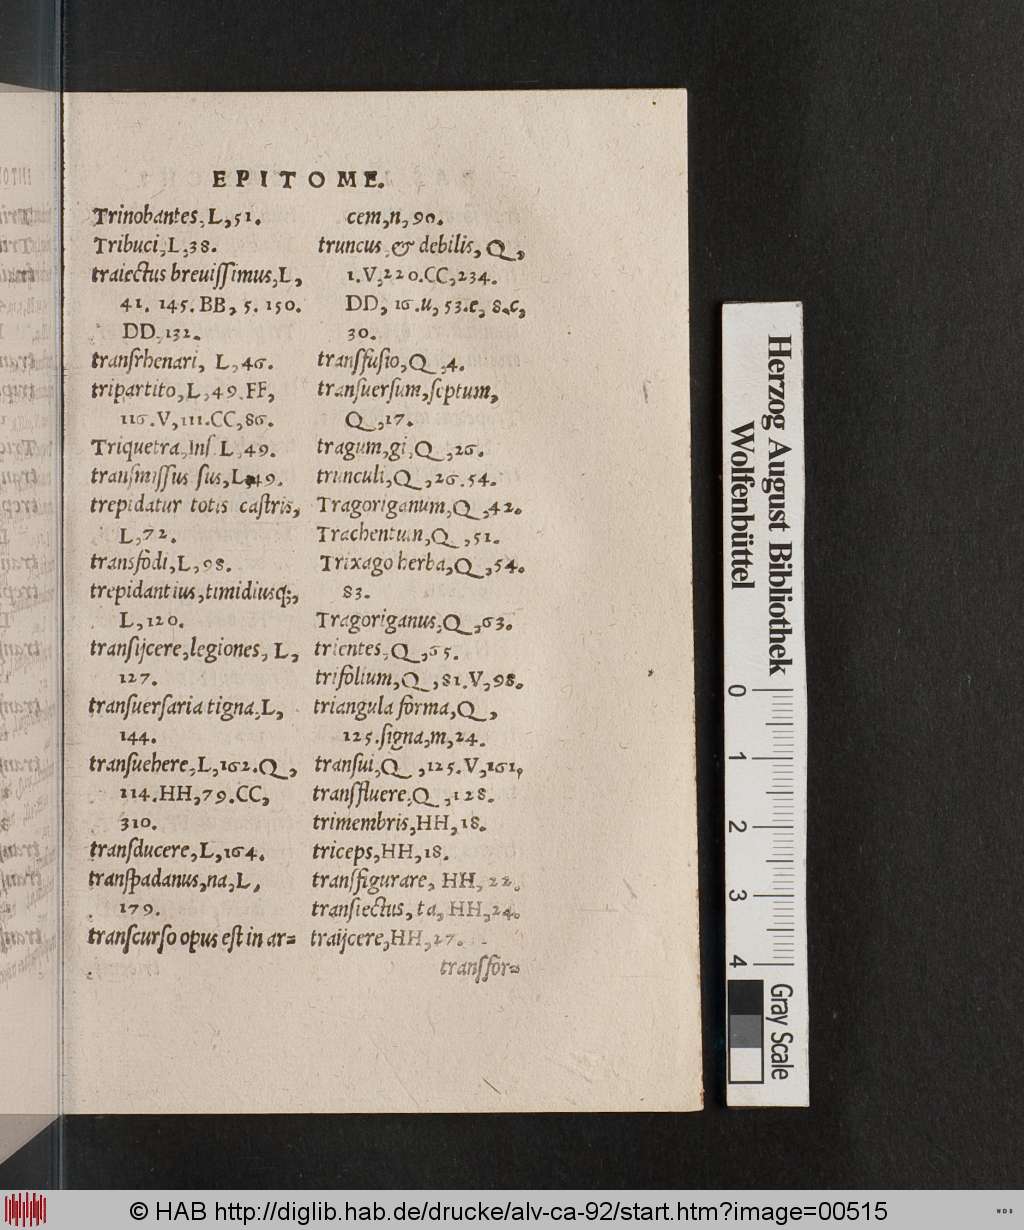 EPITOME.
Trinobantes, L, 51.
Tribuci, L, 38.
traiectus breuiſſimus, L,
41. 145. BB, 5. 150.
DD, 132.
tranſrhenari, L, 46.
tripartito, L, 49. FF,
116. V, 111. CC, 86.
Triquetra, Inſ. L, 49.
tranſmiſſus ſus, L, 49.
trepidatur totis caſtris,
L, 72.
transfodi, L, 98.
trepidantius, timidiusq́;,
L, 120.
tranſijcere, legiones, L,
127.
tranſuerſaria tigna, L,
144.
tranſuehere, L, 162. Q,
114. HH, 79. CC,
310.
tranſducere, L, 164.
tranſpadanus, na, L,
179.
tranſcurſo opus eſt in ar=
cem, n, 90.
truncus & debilis, Q,
1. V, 220. CC, 234.
DD, 16. u, 53. e, 8. c,
30.
tranſfuſio, Q, 4.
tranſuerſum, ſeptum,
Q, 17.
tragum, gi, Q, 26.
trunculi, Q, 26. 54.
Tragoriganum, Q, 42.
Trachentum, Q, 51.
Trixago herba, Q, 54.
83.
Tragoriganus, Q, 63.
trientes, Q, 65.
trifolium, Q, 81. V, 98.
triangula forma, Q,
125. ſigna, m, 24.
tranſui, Q, 125. V, 161,
tranſfluere, Q, 128.
trimembris, HH, 18.
triceps, HH, 18.
tranſfigurare, HH, 22.
tranſiectus, ta, HH, 24.
traijcere, HH, 27.
tranſfor=
Herzog August Bibliothek
Wolfenbüttel
0 1 2 3 4
Gray Scale
© HAB http://diglib.hab.de/drucke/alv-ca-92/start.htm?image=00515